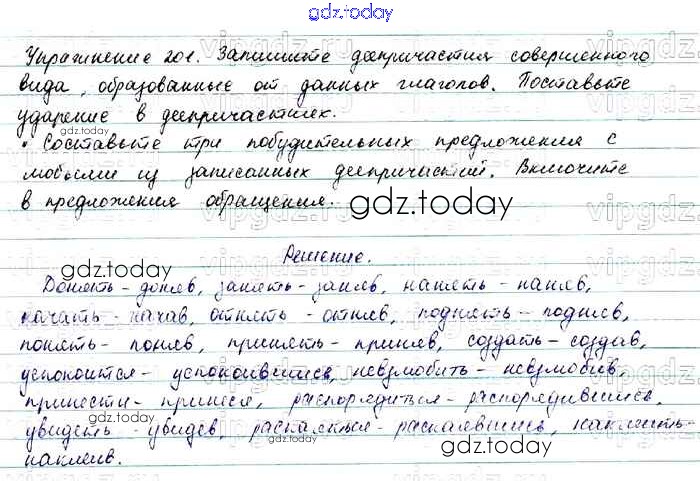 gdz.today
Упражнение 201. Запишите деепричастия совершенного
вида, образованные от данных глаголов. Поставьте
ударение в деепричастиях.
gdz.today
• Составьте три побудительных предложения с
любыми из записанных деепричастий. Включите
в предложения обращения.
gdz.today
Решение.
gdz.today
Донять - доняв, занять - заняв, нанять - наняв,
начать - начав, отнять - отняв, поднять - подняв,
понять - поняв, принять - приняв, создать - создав,
gdz.today
успокоится - успокоившись, невзлюбить - невзлюбив,
принести - принеся, распорядиться - распорядившись,
gdz.today
увидеть - увидев, раскаяться - раскаявшись, наклеить-
gdz.today
наклеив.